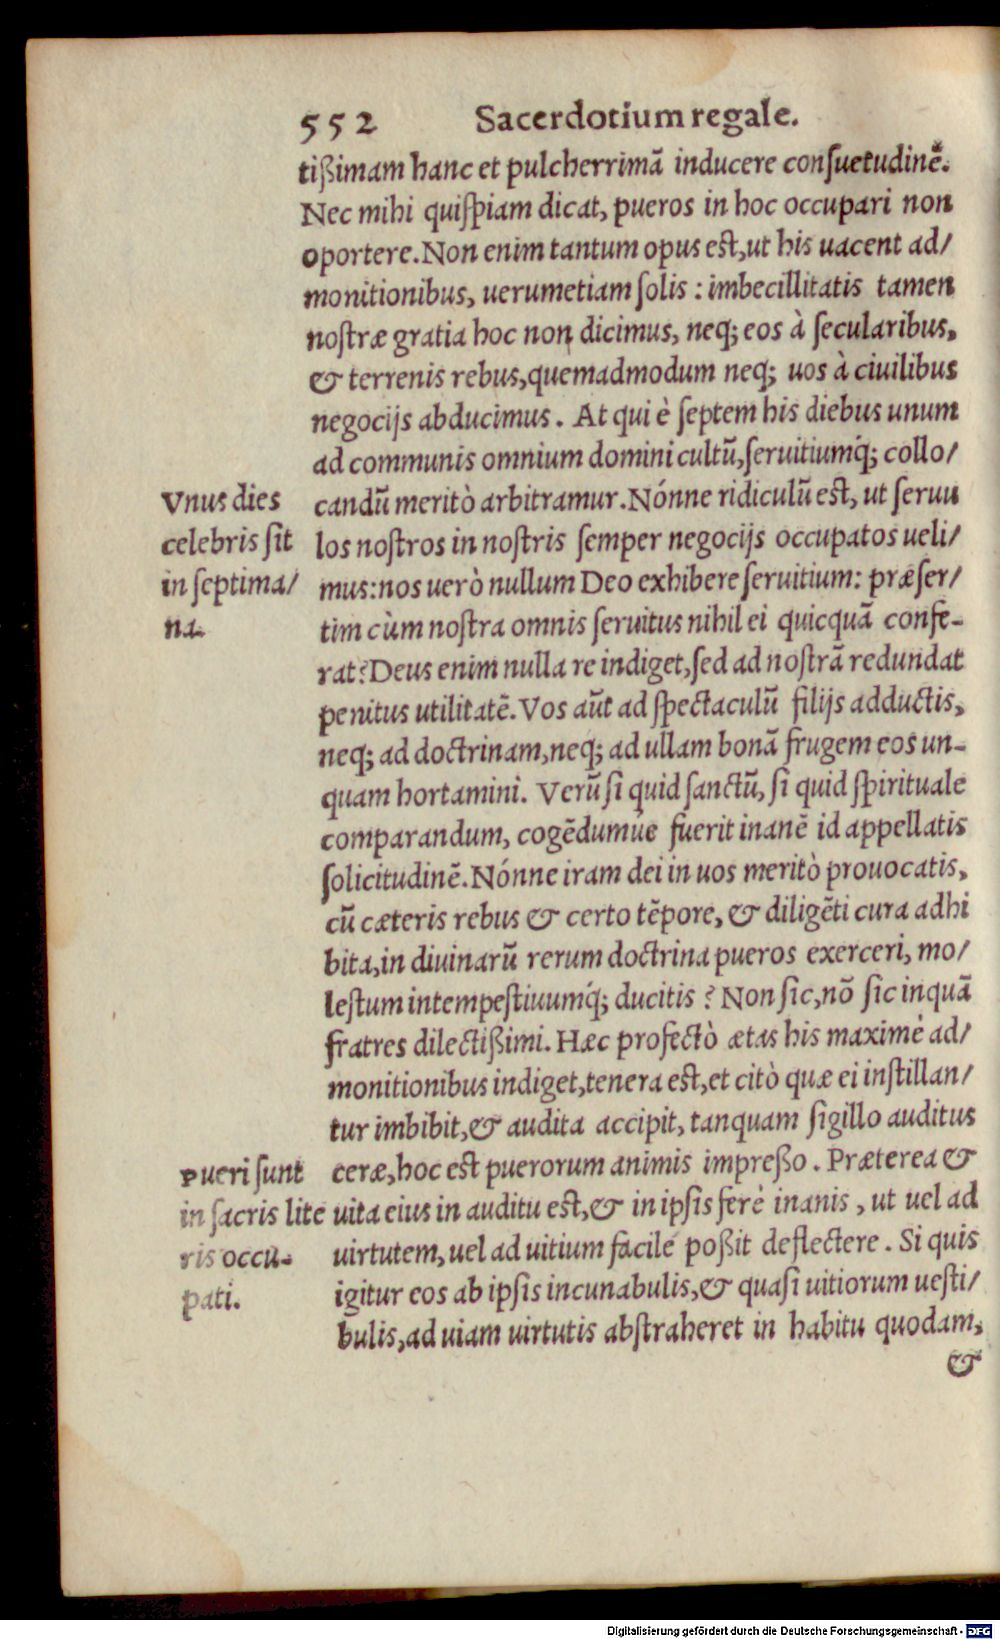 552 Sacerdotium regale.
tißimam hanc et pulcherrimā inducere conſuetudinē.
Nec mihi quiſpiam dicat, pueros in hoc occupari non
oportere. Non enim tantum opus est, ut his uacent ad/
monitionibus, uerumetiam ſolis : imbecillitatis tamen
noſtræ gratia hoc non dicimus, neq; eos à ſecularibus,
& terrenis rebus, quemadmodum neq; uos à ciuilibus
negocijs abducimus. At qui è ſeptem his diebus unum
ad communis omnium domini cultū, ſeruitiumq́; collo/
candū meritò arbitramur. Nónne ridiculū est, ut ſeruu
los noſtros in noſtris ſemper negocijs occupatos ueli/
mus: nos uerò nullum Deo exhibere ſeruitium: præſer/
tim cùm noſtra omnis ſeruitus nihil ei quicquā confe-
rat? Deus enim nulla re indiget, ſed ad noſtrā redundat
penitus utilitatē. Vos aūt ad ſpectaculū filijs adductis,
neq; ad doctrinam, neq; ad ullam bonā frugem eos un-
quam hortamini. Verū ſi quid ſanctū, ſi quid ſpirituale
comparandum, cogēdumúe fuerit inanē id appellatis
ſolicitudinē. Nónne iram dei in uos meritò prouocatis,
cū cæteris rebus & certo tēpore, & diligēti cura adhi
bita, in diuinarū rerum doctrina pueros exerceri, mo/
leſtum intempeſtiuumq́; ducitis ? Non ſic, nō ſic inquā
fratres dilectißimi. Hæc profectò ætas his maximè ad/
monitionibus indiget, tenera est, et citò quæ ei inſtillan/
tur imbibit, & audita accipit, tanquam ſigillo auditus
ceræ, hoc est puerorum animis impreßo. Præterea &
uita eius in auditu est, & in ipſis ferè inanis, ut uel ad
uirtutem, uel ad uitium facilè poßit deflectere. Si quis
igitur eos ab ipſis incunabulis, & quaſi uitiorum ueſti/
bulis, ad uiam uirtutis abſtraheret in habitu quodam,
&
Vnus dies
celebris ſit
in ſeptima/
na.
Pueri ſunt
in ſacris lite
ris occu-
pati.
Digitalisierung gefördert durch die Deutsche Forschungsgemeinschaft - DFG